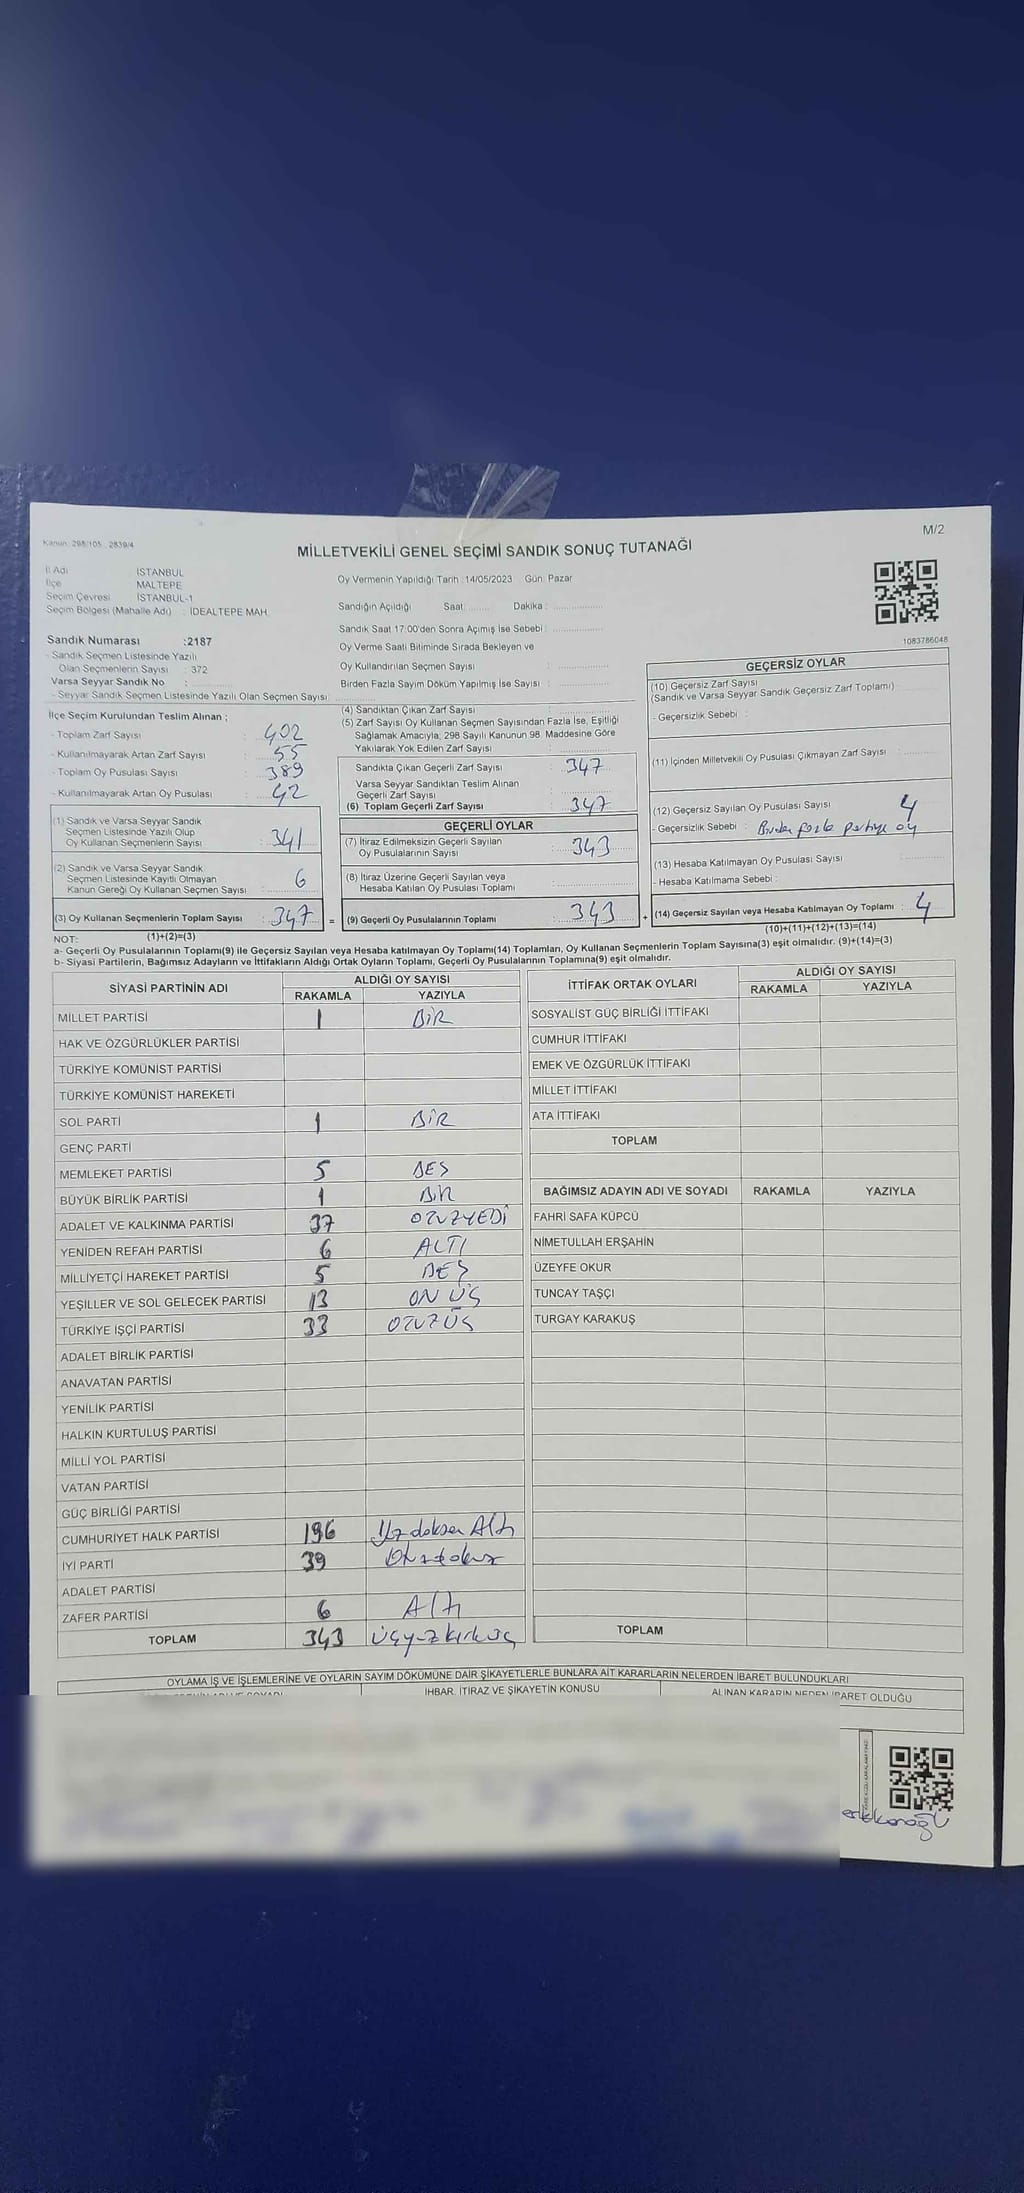 M/2
Kanun: 298/105 , 2839/4
MİLLETVEKİLİ GENEL SEÇİMİ SANDIK SONUÇ TUTANAĞI
İl Adı : İSTANBUL
İlçe : MALTEPE
Seçim Çevresi : İSTANBUL-1
Seçim Bölgesi (Mahalle Adı) : İDEALTEPE MAH.
Sandık Numarası :2187
- Sandık Seçmen Listesinde Yazılı
Olan Seçmenlerin Sayısı : 372
Varsa Seyyar Sandık No :
- Seyyar Sandık Seçmen Listesinde Yazılı Olan Seçmen Sayısı
Oy Vermenin Yapıldığı Tarih :14/05/2023 Gün: Pazar
Sandığın Açıldığı Saat: Dakika :
Sandık Saat 17:00'den Sonra Açımış İse Sebebi :
Oy Verme Saati Bitiminde Sırada Bekleyen ve
Oy Kullandırılan Seçmen Sayısı :
Birden Fazla Sayım Döküm Yapılmış İse Sayısı :
1083786048
İlçe Seçim Kurulundan Teslim Alınan ;
- Toplam Zarf Sayısı : 402
- Kullanılmayarak Artan Zarf Sayısı : 55
- Toplam Oy Pusulası Sayısı : 389
- Kullanılmayarak Artan Oy Pusulası : 42
(1) Sandık ve Varsa Seyyar Sandık
Seçmen Listesinde Yazılı Olup
Oy Kullanan Seçmenlerin Sayısı : 341
(2) Sandık ve Varsa Seyyar Sandık
Seçmen Listesinde Kayıtlı Olmayan
Kanun Gereği Oy Kullanan Seçmen Sayısı : 6
(3) Oy Kullanan Seçmenlerin Toplam Sayısı : 347 =
(1)+(2)=(3)
(4) Sandıktan Çıkan Zarf Sayısı :
(5) Zarf Sayısı Oy Kullanan Seçmen Sayısından Fazla İse, Eşitliği
Sağlamak Amacıyla; 298 Sayılı Kanunun 98. Maddesine Göre
Yakılarak Yok Edilen Zarf Sayısı :
Sandıkta Çıkan Geçerli Zarf Sayısı : 347
Varsa Seyyar Sandıktan Teslim Alınan
Geçerli Zarf Sayısı :
(6) Toplam Geçerli Zarf Sayısı : 347
GEÇERLİ OYLAR
(7) İtiraz Edilmeksizin Geçerli Sayılan
Oy Pusulalarının Sayısı : 343
(8) İtiraz Üzerine Geçerli Sayılan veya
Hesaba Katılan Oy Pusulası Toplamı :
(9) Geçerli Oy Pusulalarının Toplamı : 343 +
GEÇERSİZ OYLAR
(10) Geçersiz Zarf Sayısı
(Sandık ve Varsa Seyyar Sandık Geçersiz Zarf Toplamı) :
- Geçersizlik Sebebi :
(11) İçinden Milletvekili Oy Pusulası Çıkmayan Zarf Sayısı :
(12) Geçersiz Sayılan Oy Pusulası Sayısı : 4
- Geçersizlik Sebebi : Birden fazla partiye oy
(13) Hesaba Katılmayan Oy Pusulası Sayısı :
- Hesaba Katılmama Sebebi :
(14) Geçersiz Sayılan veya Hesaba Katılmayan Oy Toplamı : 4
(10)+(11)+(12)+(13)=(14)
NOT:
a- Geçerli Oy Pusulalarının Toplamı(9) ile Geçersiz Sayılan veya Hesaba katılmayan Oy Toplamı(14) Toplamları, Oy Kullanan Seçmenlerin Toplam Sayısına(3) eşit olmalıdır. (9)+(14)=(3)
b- Siyasi Partilerin, Bağımsız Adayların ve İttifakların Aldığı Ortak Oyların Toplamı, Geçerli Oy Pusulalarının Toplamına(9) eşit olmalıdır.
SİYASİ PARTİNİN ADI ALDIĞI OY SAYISI
RAKAMLA YAZIYLA
MİLLET PARTİSİ 1 BİR
HAK VE ÖZGÜRLÜKLER PARTİSİ
TÜRKİYE KOMÜNİST PARTİSİ
TÜRKİYE KOMÜNİST HAREKETİ
SOL PARTİ 1 BİR
GENÇ PARTİ
MEMLEKET PARTİSİ 5 BEŞ
BÜYÜK BİRLİK PARTİSİ 1 BİR
ADALET VE KALKINMA PARTİSİ 37 OTUZYEDİ
YENİDEN REFAH PARTİSİ 6 ALTI
MİLLİYETÇİ HAREKET PARTİSİ 5 BEŞ
YEŞİLLER VE SOL GELECEK PARTİSİ 13 ON ÜÇ
TÜRKİYE İŞÇİ PARTİSİ 33 OTUZÜÇ
ADALET BİRLİK PARTİSİ
ANAVATAN PARTİSİ
YENİLİK PARTİSİ
HALKIN KURTULUŞ PARTİSİ
MİLLİ YOL PARTİSİ
VATAN PARTİSİ
GÜÇ BİRLİĞİ PARTİSİ
CUMHURİYET HALK PARTİSİ 196 Yüz doksan Altı
İYİ PARTİ 39 Otuzdokuz
ADALET PARTİSİ
ZAFER PARTİSİ 6 Altı
TOPLAM 343 Üçyüzkırküç
İTTİFAK ORTAK OYLARI ALDIĞI OY SAYISI
RAKAMLA YAZIYLA
SOSYALİST GÜÇ BİRLİĞİ İTTİFAKI
CUMHUR İTTİFAKI
EMEK VE ÖZGÜRLÜK İTTİFAKI
MİLLET İTTİFAKI
ATA İTTİFAKI
TOPLAM
BAĞIMSIZ ADAYIN ADI VE SOYADI RAKAMLA YAZIYLA
FAHRİ SAFA KÜPCÜ
NİMETULLAH ERŞAHİN
ÜZEYFE OKUR
TUNCAY TAŞÇI
TURGAY KARAKUŞ
TOPLAM
OYLAMA İŞ VE İŞLEMLERİNE VE OYLARIN SAYIM DÖKÜMÜNE DAİR ŞİKAYETLERLE BUNLARA AİT KARARLARIN NELERDEN İBARET BULUNDUKLARI
İHBAR, İTİRAZ VE ŞİKAYETİN KONUSU
ALINAN KARARIN NEDEN İBARET OLDUĞU